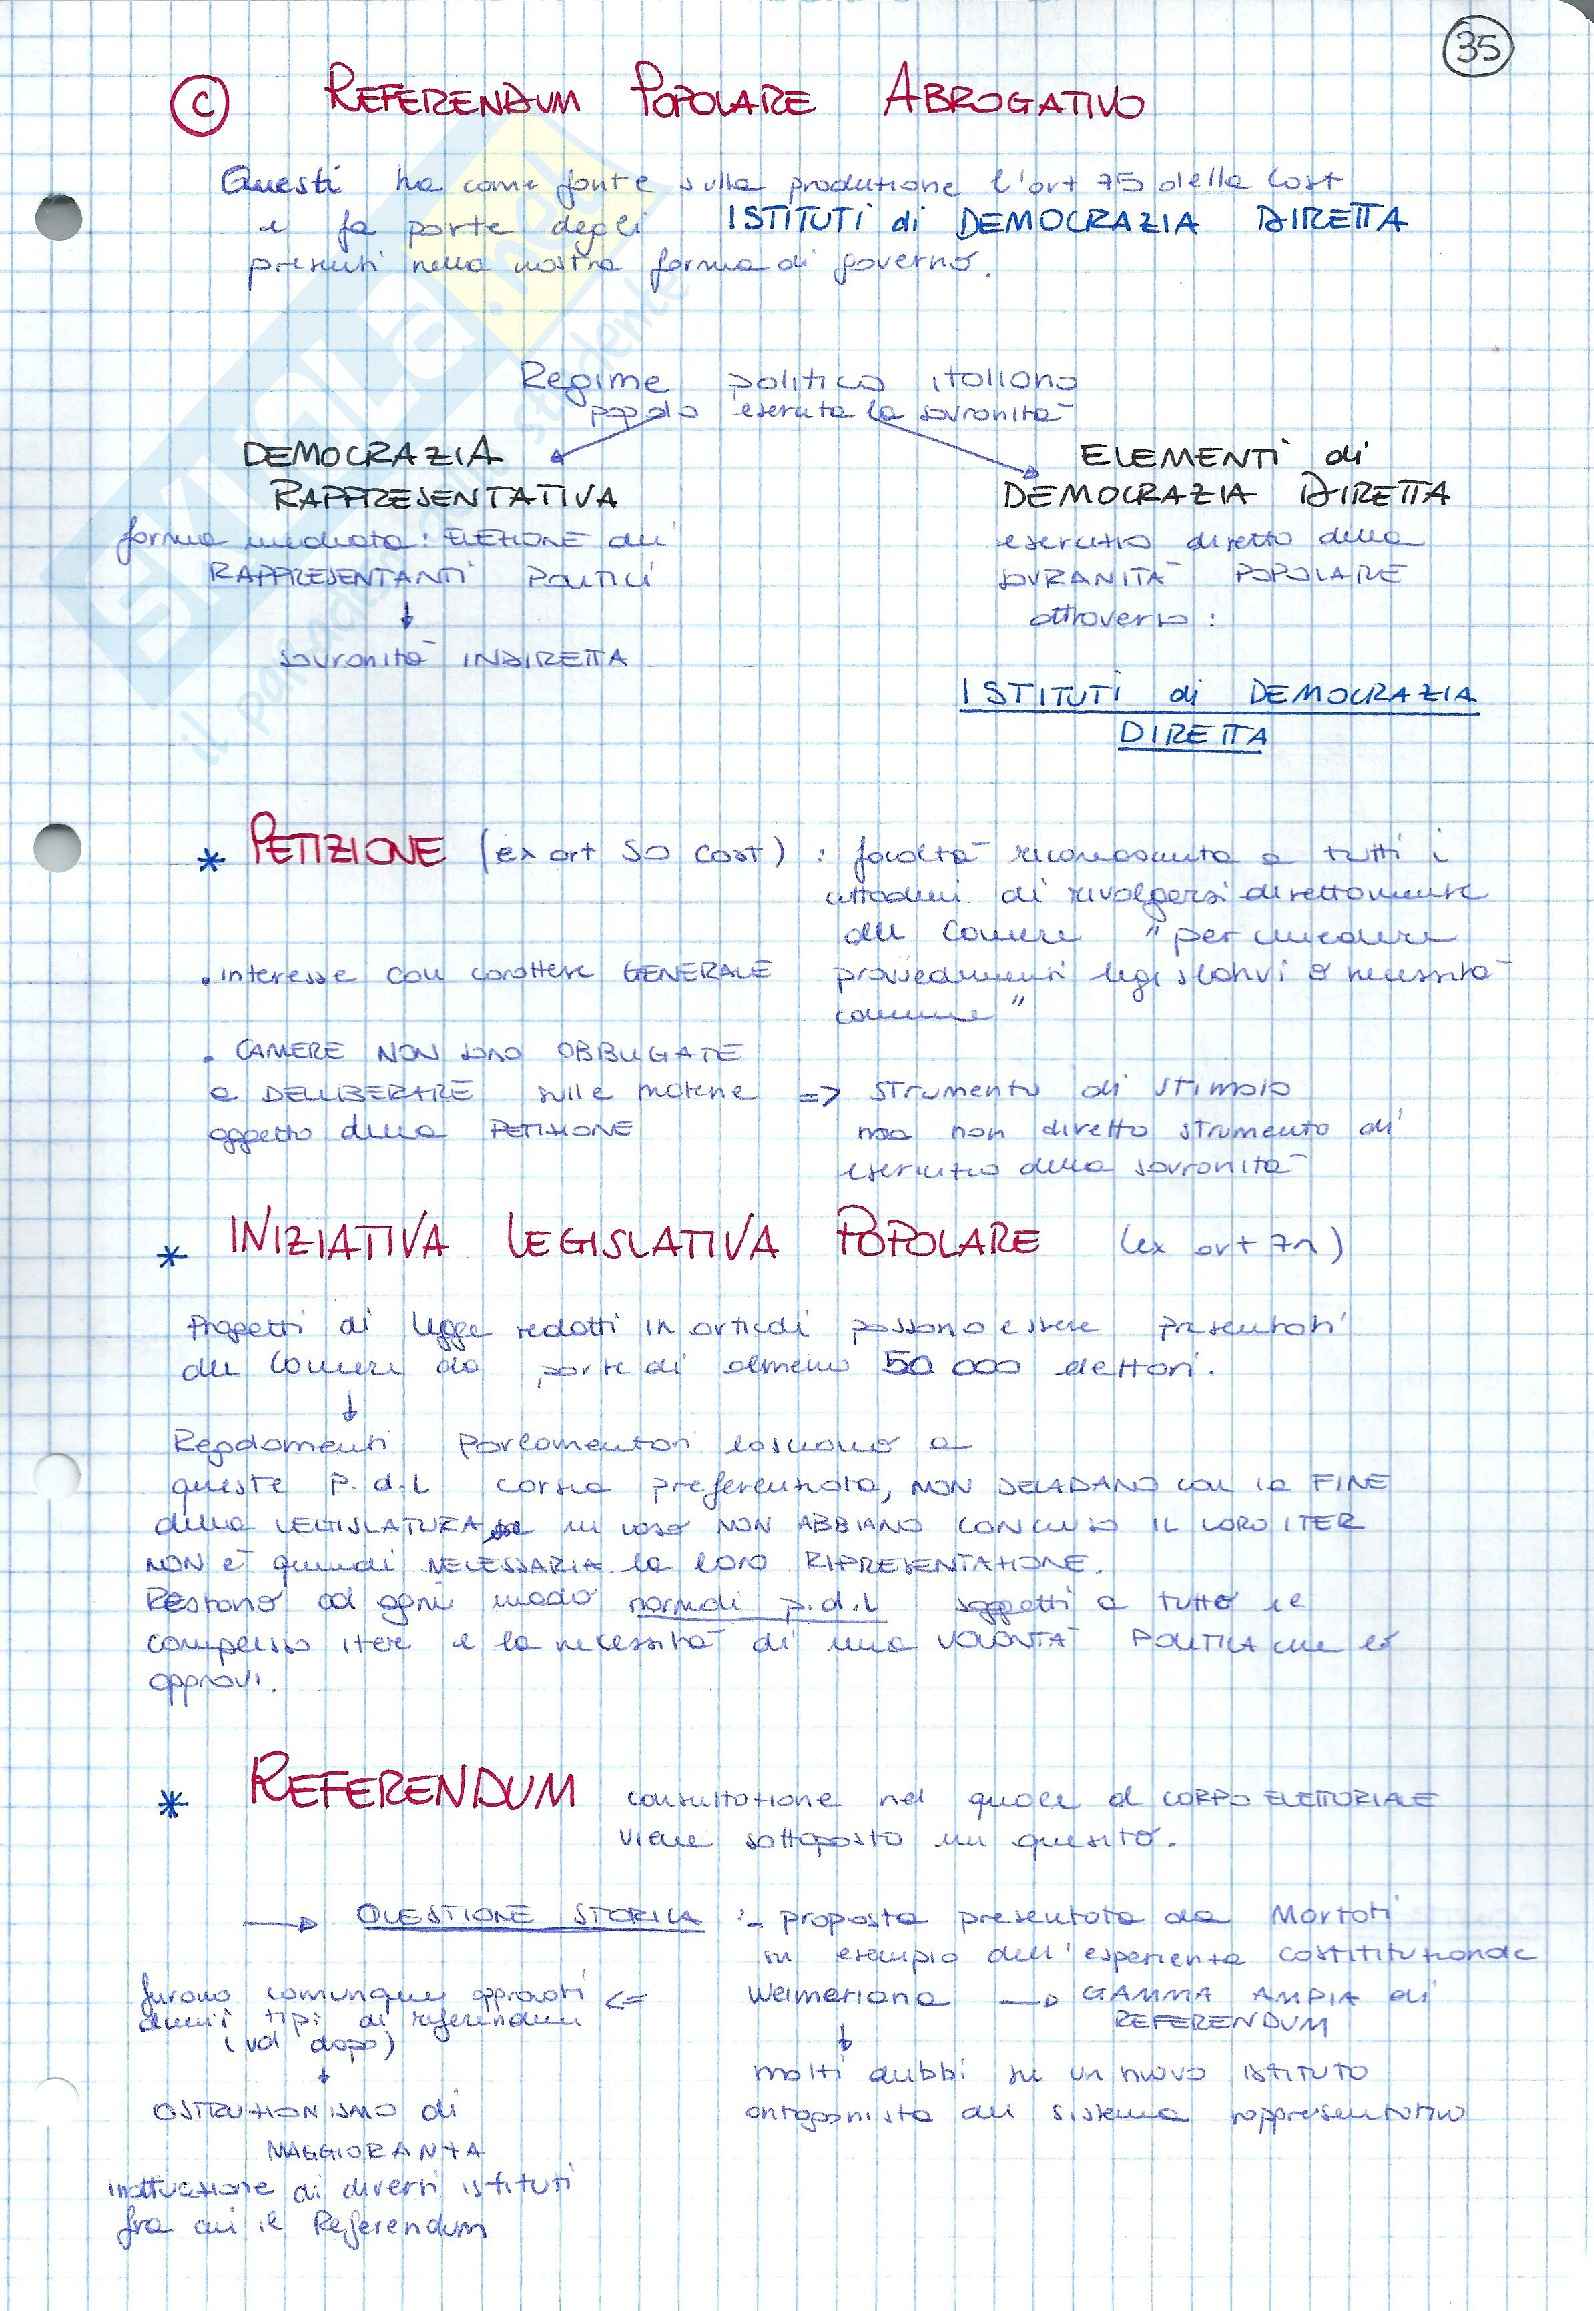 35
C REFERENDUM POPOLARE ABROGATIVO
Questi ha come fonte sulla produzione l'art 75 della Cost
e fa parte degli ISTITUTI di DEMOCRAZIA DIRETTA
presenti nella nostra forma di governo.
Regime politico italiano
popolo esercita la sovranità
DEMOCRAZIA
RAPPRESENTATIVA
forma mediata: ELEZIONE dei
RAPPRESENTANTI POLITICI
↓
sovranità INDIRETTA
ELEMENTI di
DEMOCRAZIA DIRETTA
esercizio diretto della
SOVRANITÀ POPOLARE
attraverso:
ISTITUTI di DEMOCRAZIA
DIRETTA
* PETIZIONE (ex art 50 cost) : facoltà riconosciuta a tutti i
cittadini di rivolgersi direttamente
alle Camere "per chiedere
provvedimenti legislativi o necessità
comune"
. interesse con carattere GENERALE
. CAMERE NON sono OBBLIGATE
a DELIBERARE sulle materie => strumento di stimolo
oggetto della PETIZIONE
ma non diretto strumento di
esercizio della sovranità
* INIZIATIVA LEGISLATIVA POPOLARE (ex art 71)
Progetti di legge redatti in articoli possono essere presentati
alle Camere da parte di almeno 50 000 elettori.
↓
Regolamenti Parlamentari lasciano a
queste p.d.l corsia preferenziale, NON DECADANO con la FINE
della LEGISLATURA in caso NON ABBIANO CONCLUSO IL LORO ITER
NON è quindi NECESSARIA la loro RIPRESENTAZIONE.
Restano ad ogni modo normali p.d.l soggetti a tutto il
complesso iter e la necessità di una VOLONTÀ POLITICA che lo
approvi.
* REFERENDUM consultazione nel quale il CORPO ELETTORALE
viene sottoposto un quesito.
→ QUESTIONE STORICA :- proposta presentata da Mortati
su esempio dell'esperienza costitituzionale
Weimeriana → GAMMA AMPIA di
REFERENDUM
↓
molti dubbi su un nuovo ISTITUTO
antagonista del sistema rappresentativo
furono comunque approvati <=
alcuni tipi di referendum
(vd dopo)
↓
OSTRUZIONISMO di
MAGGIORANZA
inattuazione di diversi istituti
fra cui il Referendum
SKUOLA.net
il paradiso dello studente